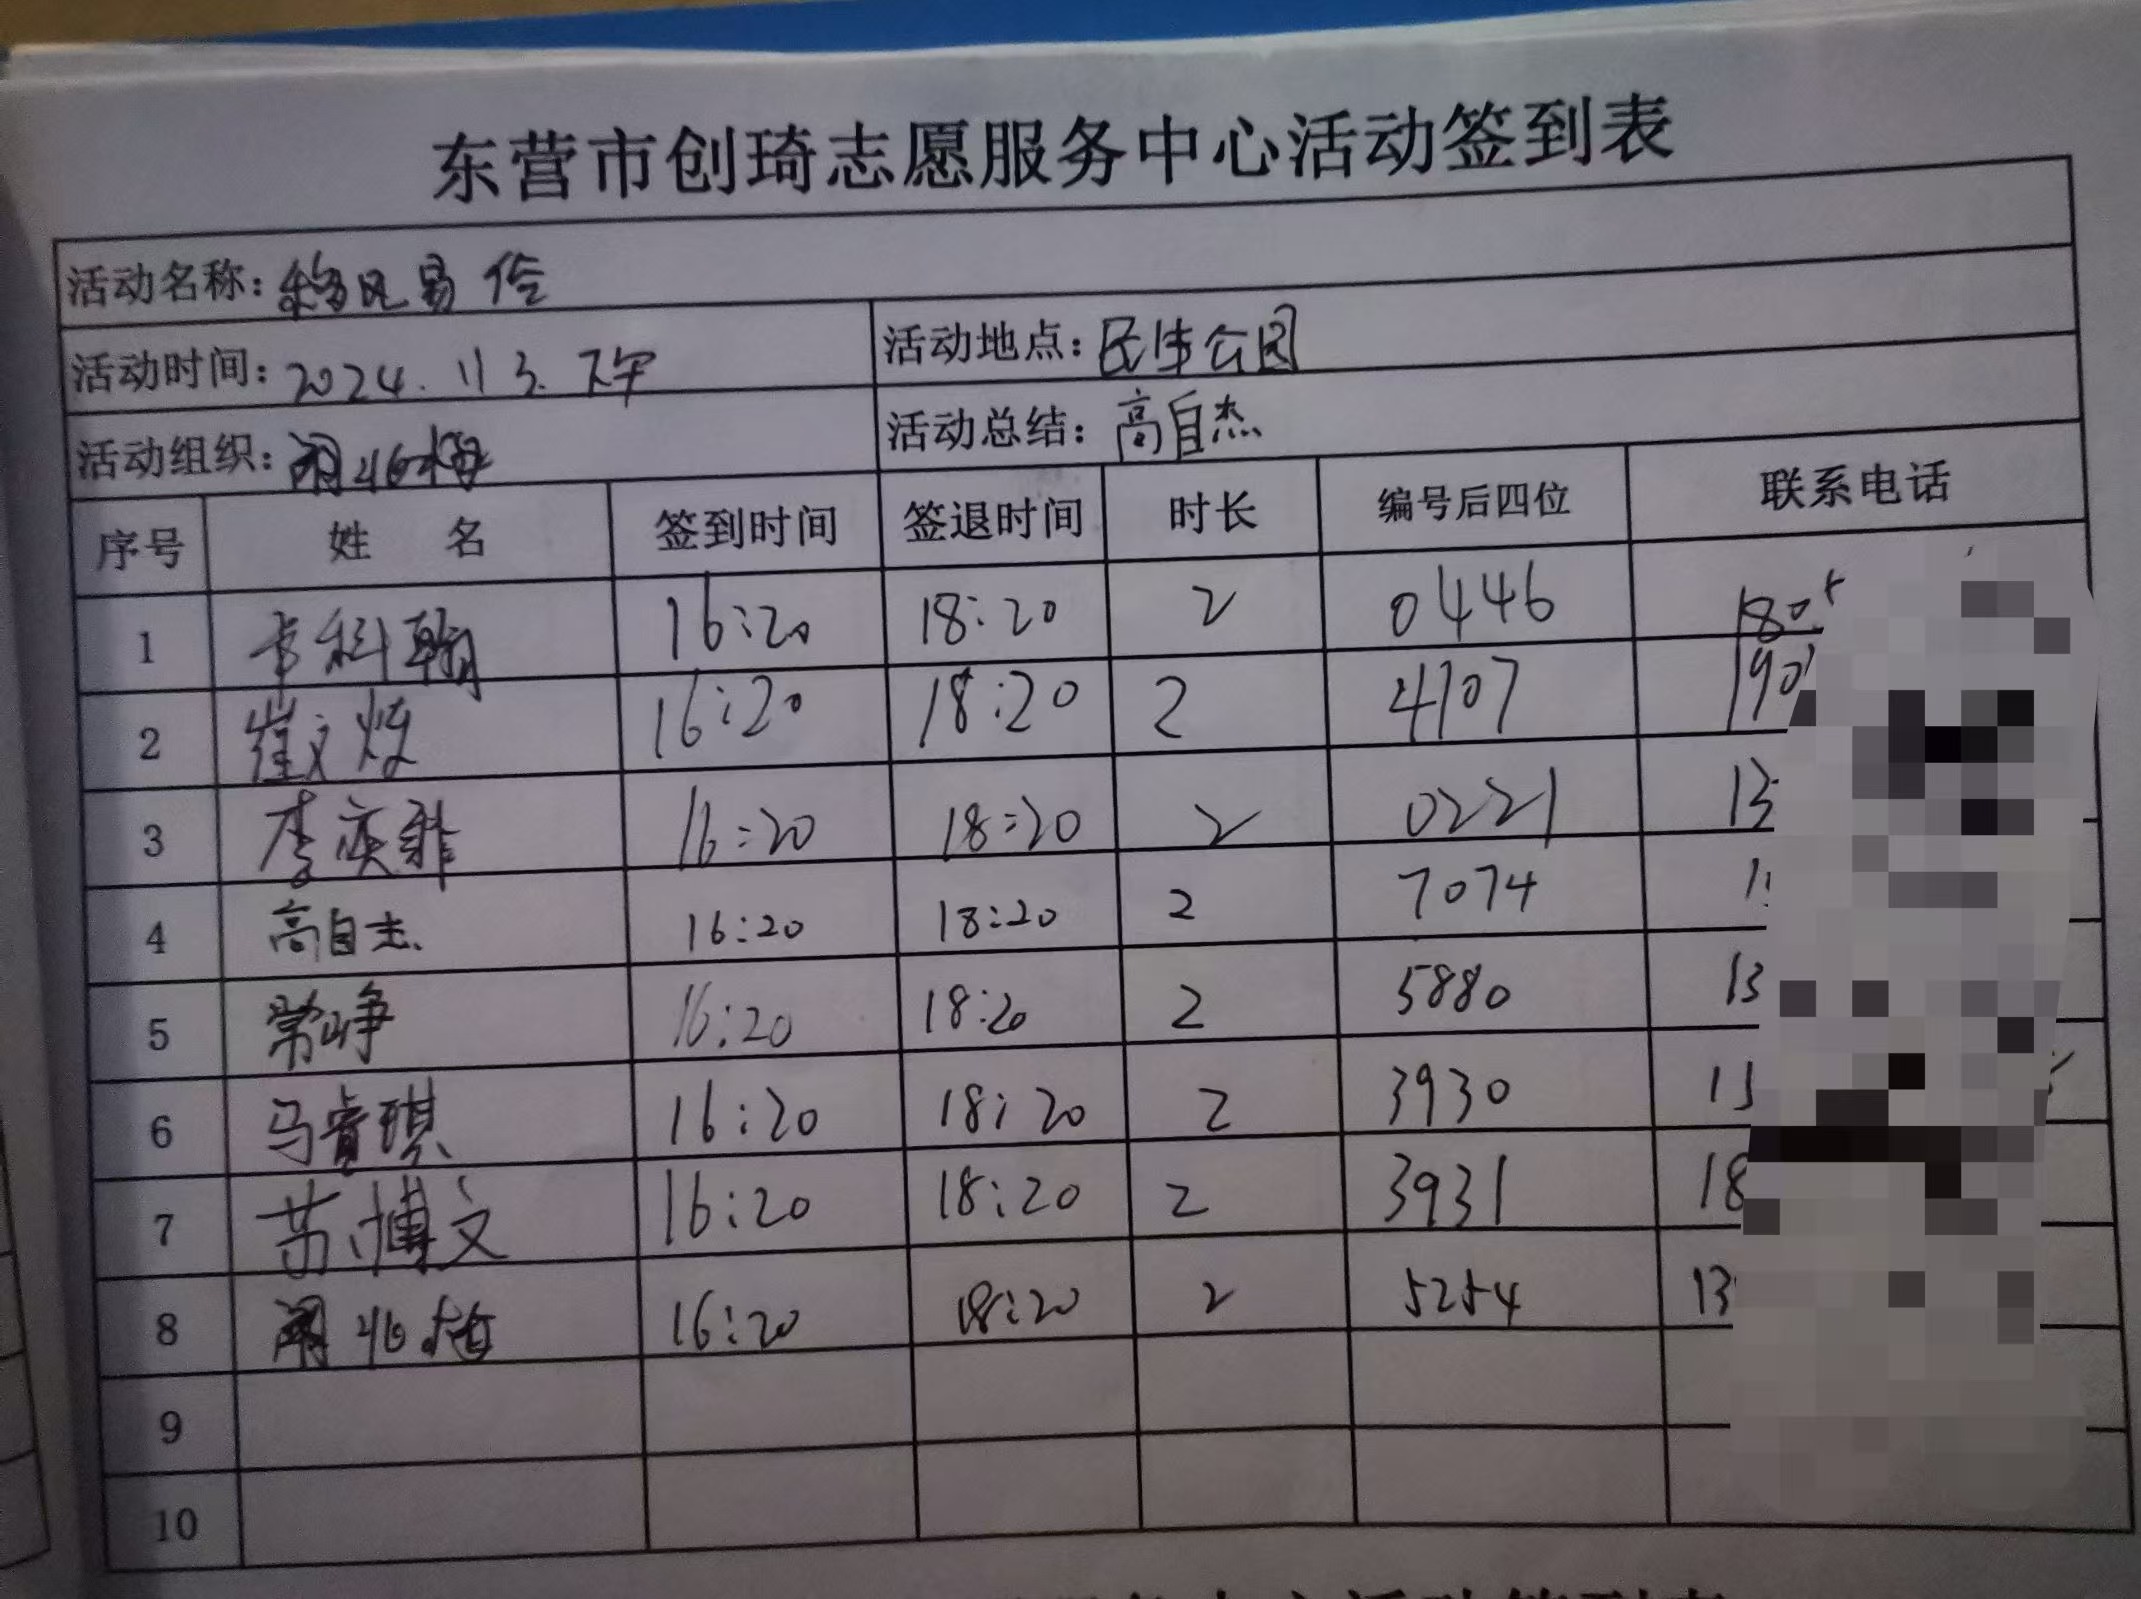 东营市创琦志愿服务中心活动签到表
活动名称: 移风易俗
活动时间: 2024.11 3. 下午 活动地点: 民丰公园
活动组织: 活动总结: 高自杰
序号 姓 名 签到时间 签退时间 时长 编号后四位 联系电话
1 卞科翰 16:20 18:20 2 0446 180
2 崔文 16:20 18:20 2 4707 190
3 李奕 16:20 18:20 2 0221 13
4 高自杰 16:20 18:20 2 7074
5 常峥 16:20 18:20 2 5880 13
6 马睿琪 16:20 18:20 2 3930 15
7 苏博文 16:20 18:20 2 3931 18
8 16:20 18:20 2 5254 13
9
10